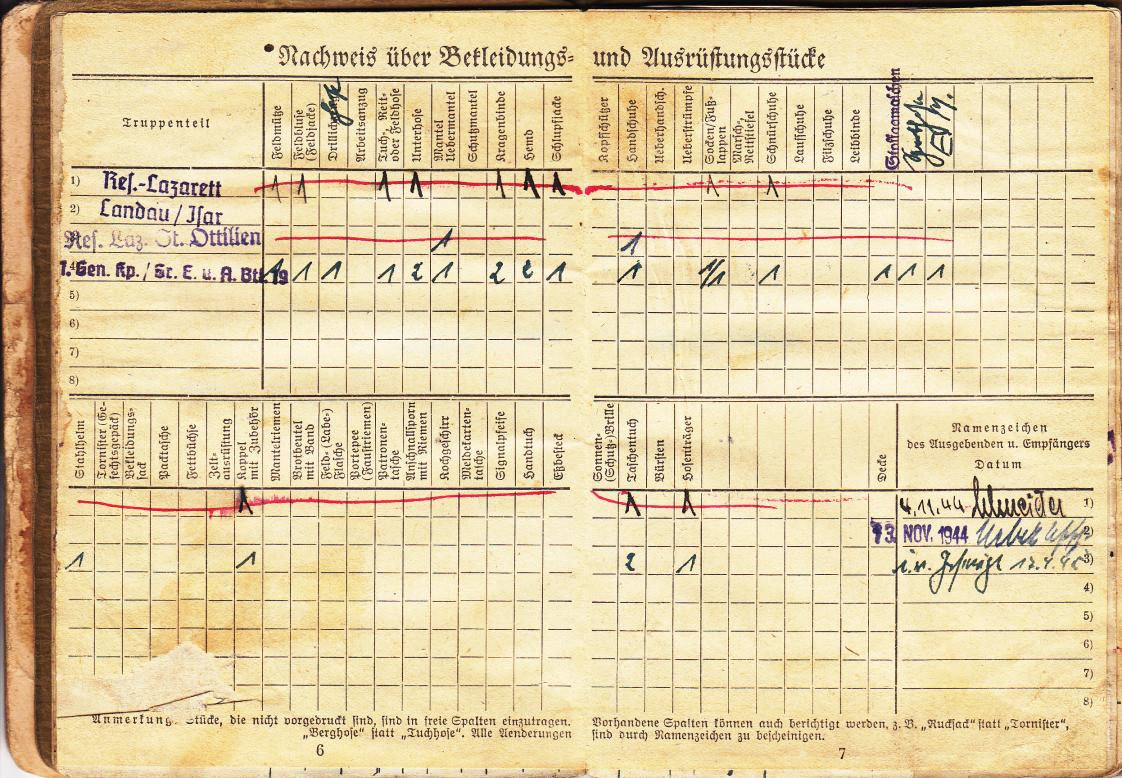 Nachweis über Bekleidungs- und Ausrüstungsstücke
Truppenteil
Feldmütze
Feldbluse (Feldjacke)
Drillich
Arbeitsanzug
Tuch-, Reit- oder Feldhose
Unterhose
Mantel Uebermantel
Schutzmantel
Kragenbinde
Hemd
Schlupfjacke
Kopfschützer
Handschuhe
Ueberhandsch.
Ueberstrümpfe
Socken/Fuß-lappen
Marsch-, Reitstiefel
Schnürschuhe
Laufschuhe
Filzschuhe
Leibbinde
Staffgamaschen
1) Res.-Lazarett 1 1 1 1 1 1 1 1 1
2) Landau / Isar
Res. Laz. St. Ottilien 1 1
1. Gen. Kp. / Gr. E. u. A. Btl. 19 1 1 1 1 2 1 2 2 1 1 1/1 1 1 1 1
5)
6)
7)
8)
Stahlhelm
Tornister (Ge-fechtsgepäck)
Bekleidungs-sack
Packtasche
Fettbüchse
Zelt-ausrüstung
Koppel mit Zubehör
Mantelriemen
Brotbeutel mit Band
Feld- (Labe-) Flasche
Portepee (Faustriemen)
Patronen-tasche
Anschnallsporn mit Riemen
Kochgeschirr
Meldekarten-tasche
Signalpfeife
Handtuch
Eßbesteck
Sonnen- (Schutz-) Brille
Taschentuch
Bürsten
Hosenträger
Decke
Namenzeichen
des Ausgebenden u. Empfängers
Datum
1 1 1 4.11.44 Schneider 1)
13. NOV. 1944 2)
1 1 2 1 i.v. 3)
4)
5)
6)
7)
8)
Anmerkung: Stücke, die nicht vorgedruckt sind, sind in freie Spalten einzutragen.
„Berghose" statt „Tuchhose". Alle Aenderungen
6
Vorhandene Spalten können auch berichtigt werden, z. B. „Rucksack" statt „Tornister",
sind durch Namenzeichen zu bescheinigen.
7